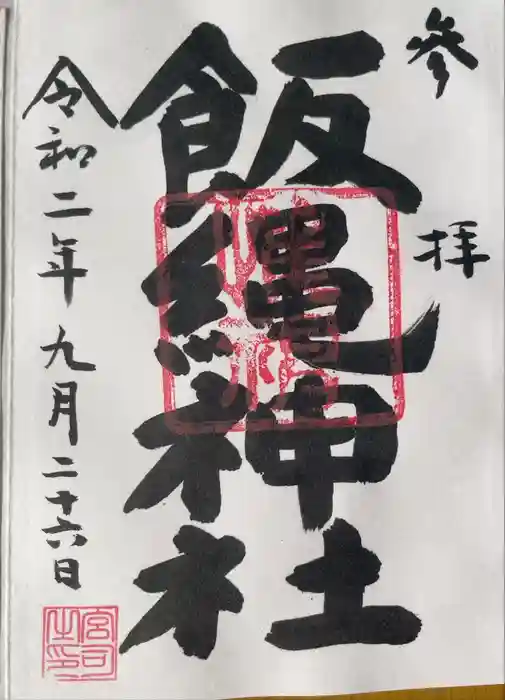 参拝
飯縄神社
令和二年九月二十六日
宮司之印